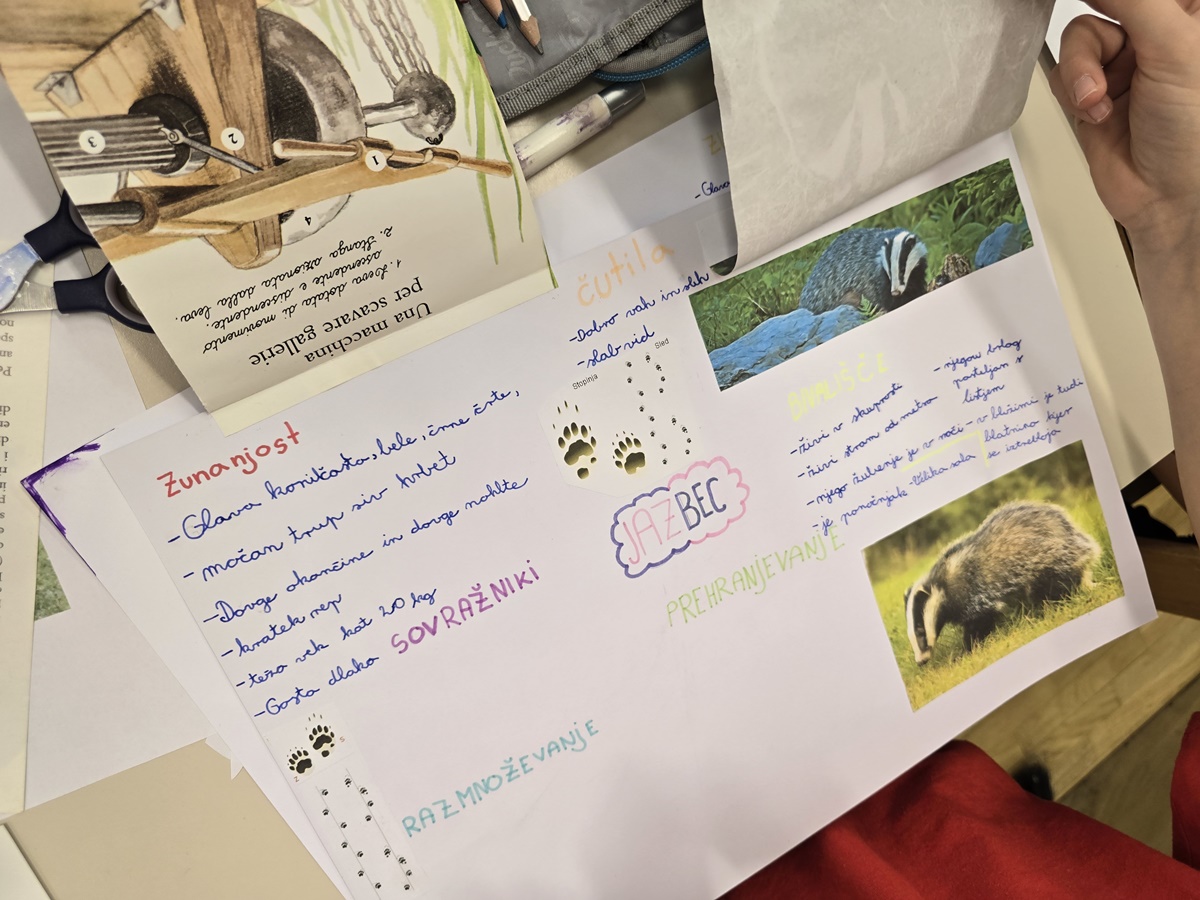 Una macchina
per scavare gallerie
1. Leva dotata di movimento
ascendente e discendente.
2. Stanga azionata dalla leva.
3
2
1
4
Zunanjost
-Glava koničasta, bele, črne črte,
- močan trup siv hrbet
-Dolge okončine in dolge nohlte
-kratek rep
-teža vek kot 20 kg
-Gosta dlaka
čutila
-Dobro vah in sluh
-slab vid
Stopinja
Sled
JAZBEC
SOVRAŽNIKI
RAZMNOŽEVANJE
PREHRANJEVANJE
BIVALIŠČE
-živi v skupnosti
-živi stran od
-njegov brlog
posteljan z
listjem
-njego življenje je v noči
- v bližini je tudi
blatnino kjer
se iztreblja
-je ponočnjak
-Glava